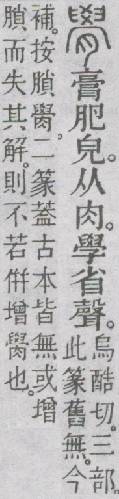 膏肥皃。从肉。學省聲。烏酷切。三部。
此篆舊無。今
補。按二篆蓋古本皆無。或增
而失其解。則不若倂增也。